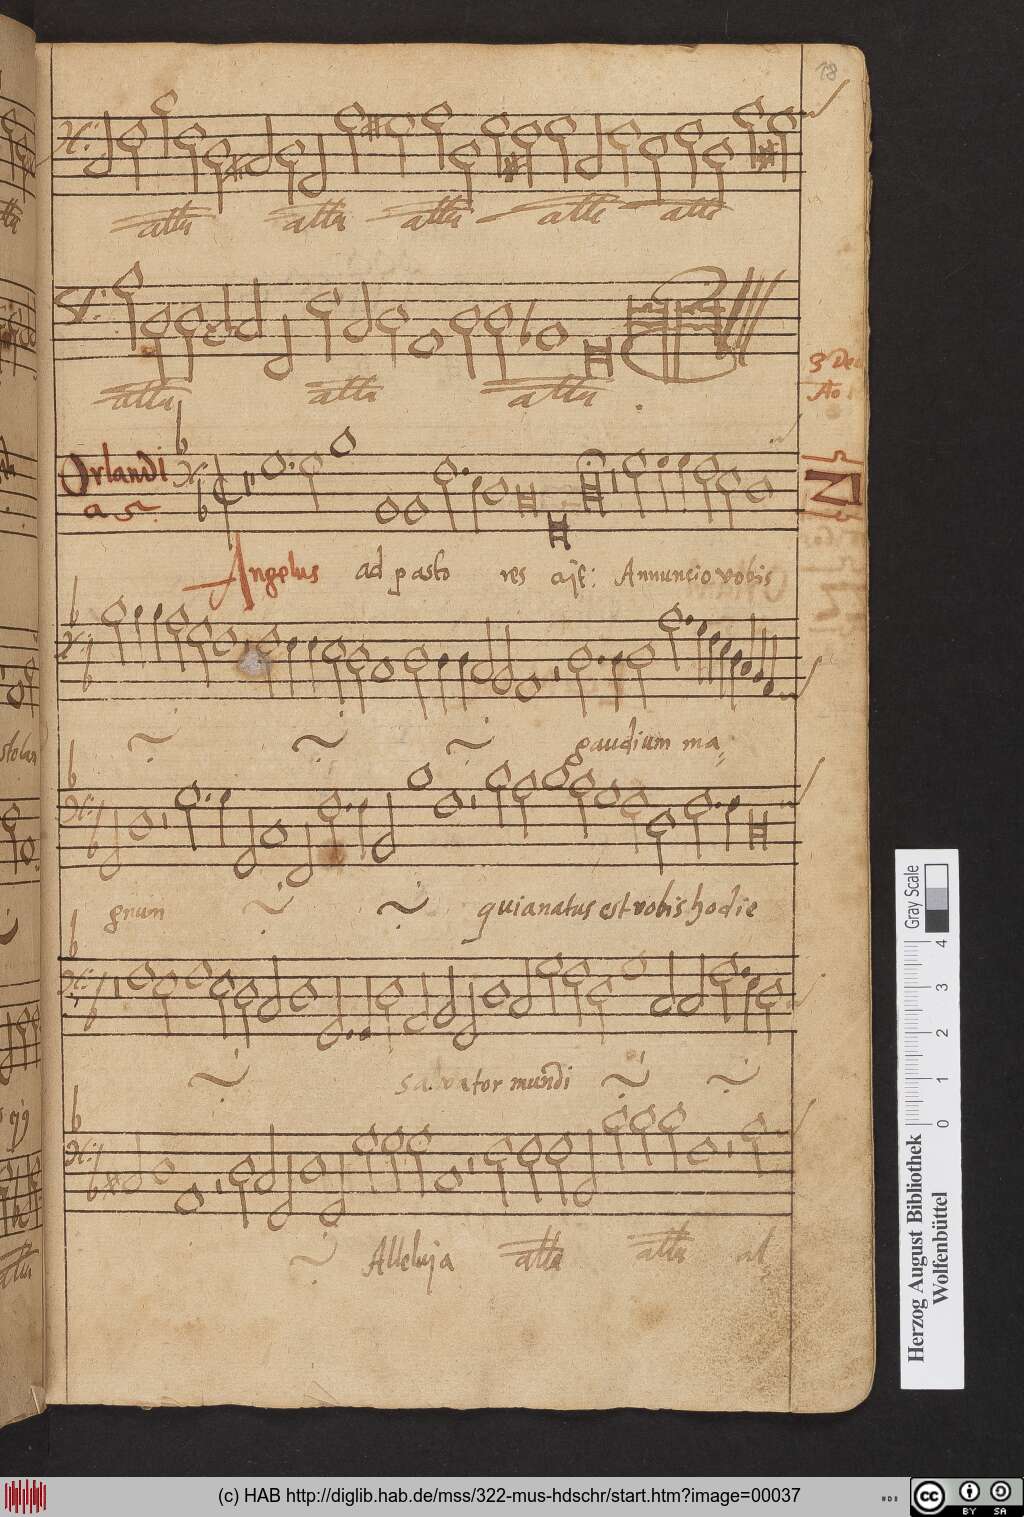 18
alla alla alla alla alla
alla alla alla
3 Dec
Ao
Orlandi
a 5.
Angelus ad pasto res ajt: Annuncio vobis
gaudium ma,
gnum quia natus est vobis hodie
Salvator mundi
Alleluja alla alla al
Gray Scale
0 1 2 3 4
Herzog August Bibliothek
Wolfenbüttel
(c) HAB http://diglib.hab.de/mss/322-mus-hdschr/start.htm?image=00037
cc BY SA